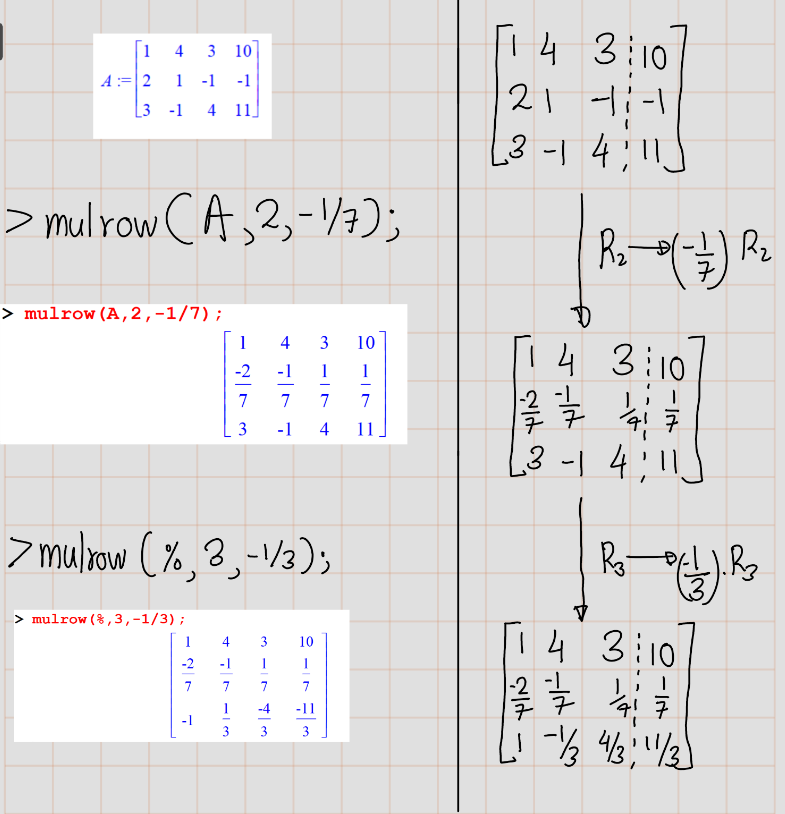 A := [1 4 3 10
2 1 -1 -1
3 -1 4 11]
> mulrow(A,2,-1/7);
> mulrow(A,2,-1/7);
1 4 3 10
-2/7 -1/7 1/7 1/7
3 -1 4 11
> mulrow(%,3,-1/3);
> mulrow(%,3,-1/3);
1 4 3 10
-2/7 -1/7 1/7 1/7
-1 1/3 -4/3 -11/3
1 4 3 10
2 1 -1 -1
3 -1 4 11
R2 → (-1/7) R2
1 4 3 10
-2/7 -1/7 1/7 1/7
3 -1 4 11
R3 → (-1/3).R3
1 4 3 10
-2/7 -1/7 1/7 1/7
1 -1/3 4/3 11/3